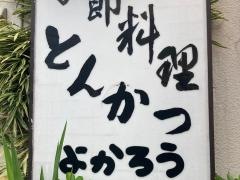 節料理
とんかつ
よかろう